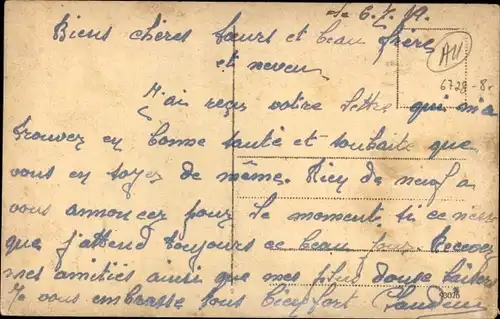 Le 6.7.19.
Biens chères soeurs et beau frères
et neveu
A11
6729-8.
J'ai reçus votre lettre qui m'a
trouvez en bonne santé et souhaite que
vous en soyez de même. Rien de neuf a
vous annoncez pour le moment si ce n'est
que j'attend toujours ce beau jour. Recevez
mes amitiés ainsi que mes plus doux baisers
Je vous embrasse tous bien fort